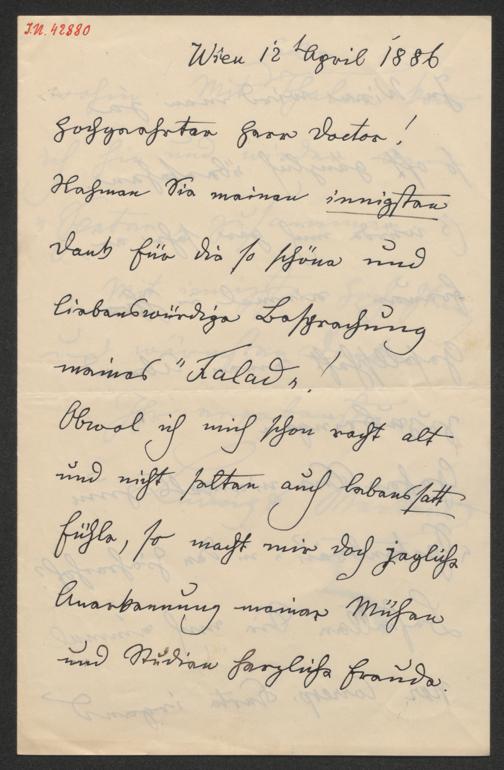 J.N. 42880
Wien 12t April 1886
Hochgeehrter Herr Doctor!
Nehmen Sie meinen innigsten
Dank für die so schöne und
liebenswürdige Besprechung
meines "Falad"!
Obwol ich mich schon recht alt
und nicht selten auch lebenssatt
fühle, so macht mir doch jegliche
Anerkennung meiner Mühen
und Studien herzliche Freude.